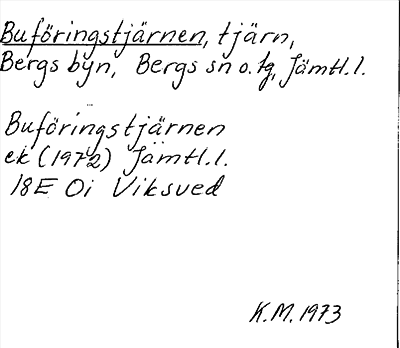 Buföringstjärnen, tjärn,
Bergs byn, Bergs sn o. tg, Jämtl.l.
Buföringstjärnen
ek (1972) Jämtl.l.
18E Oi Viksved
K.M. 1973